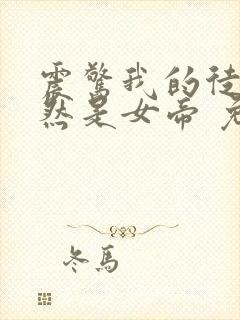 震驚我的徒
然是女帝
冬馬